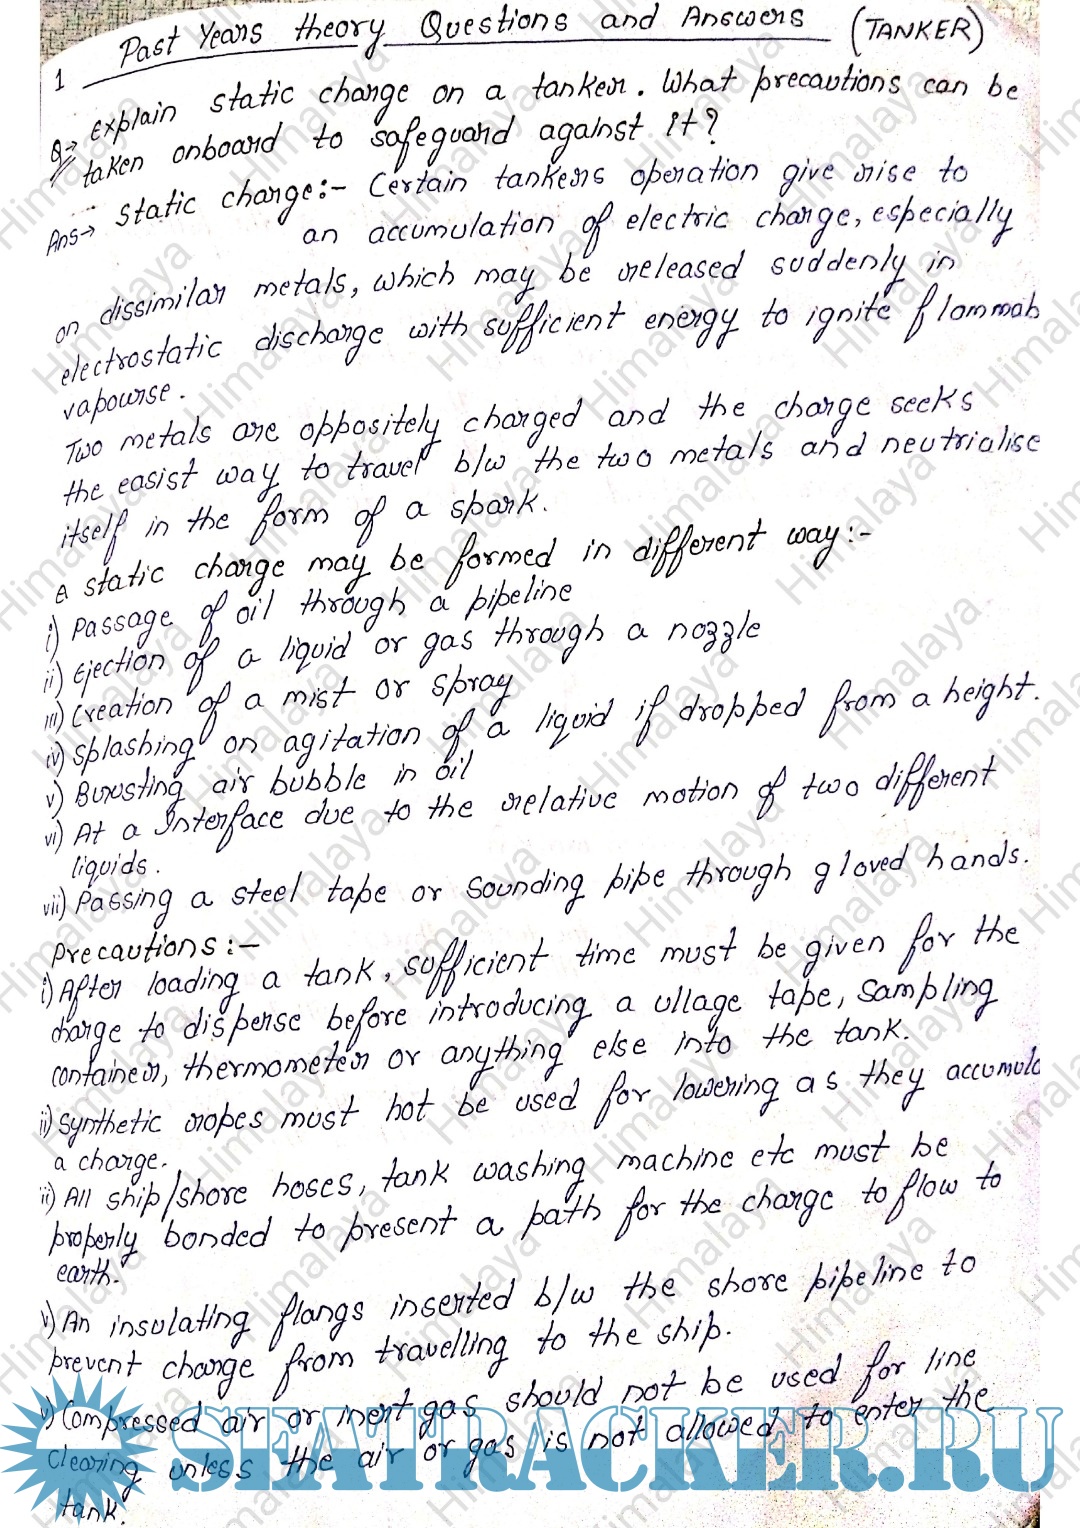 Past Years theory Questions and Answers (TANKER)
1
Q→ Explain static charge on a tanker. What precautions can be
taken onboard to safeguard against it?
Ans→ Static charge:- Certain tankers operation give rise to
an accumulation of electric charge, especially
on dissimilar metals, which may be released suddenly in
electrostatic discharge with sufficient energy to ignite flammab
vapourse.
Two metals are oppositely charged and the charge seeks
the easist way to travel b/w the two metals and neutrialise
itself in the form of a spark.
A static charge may be formed in different way:-
i) Passage of oil through a pipeline
ii) Ejection of a liquid or gas through a nozzle
iii) Creation of a mist or spray
iv) Splashing or agitation of a liquid if dropped from a height.
v) Bursting air bubble in oil
vi) At a Interface due to the relative motion of two different
liquids.
vii) Passing a steel tape or sounding pipe through gloved hands.
Precautions:-
i) After loading a tank, sufficient time must be given for the
charge to disperse before introducing a ullage tape, sampling
container, thermometer or anything else into the tank.
ii) Synthetic ropes must not be used for lowering as they accumula
a charge.
ii) All ship/shore hoses, tank washing machine etc must be
properly bonded to present a path for the charge to flow to
earth.
v) An insulating flangs inserted b/w the shore pipeline to
prevent charge from travelling to the ship.
v) Compressed air or inert gas should not be used for line
clearing unless the air or gas is not allowed to enter the
tank.
SEATRACKER.RU
Himalaya